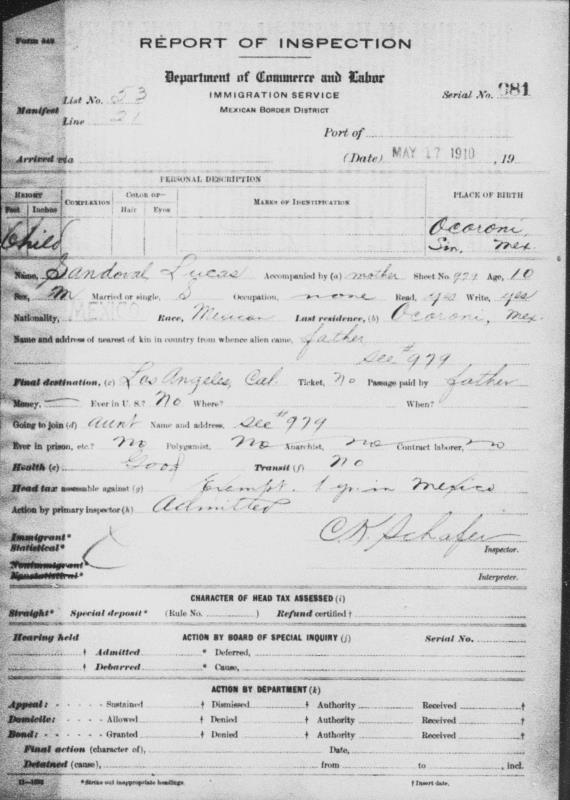 Form 548
REPORT OF INSPECTION
Department of Commerce and Labor
IMMIGRATION SERVICE
MEXICAN BORDER DISTRICT
Serial No. 981
Manifest
List No. 53
Line 21
Port of
Arrived via
(Date) MAY 17 1910, 19
PERSONAL DESCRIPTION
HEIGHT
Feet Inches
COMPLEXION
COLOR OF—
Hair Eyes
MARKS OF IDENTIFICATION
PLACE OF BIRTH
Child
Ocoroni,
Sin, Mex.
Name, Sandoval Lucas Accompanied by (a) mother Sheet No. 979 Age, 10
Sex, M Married or single, S Occupation, none Read, yes Write, yes
Nationality, MEXICO Race, Mexican Last residence, (b) Ocoroni, Mex.
Name and address of nearest of kin in country from whence alien came, father
see #979
Final destination, (c) Los Angeles, Cal. Ticket, No Passage paid by father
Money, — Ever in U. S.? No Where? When?
Going to join (d) aunt Name and address, see #979
Ever in prison, etc.? No Polygamist, No Anarchist, no Contract laborer, no
Health (e) Good Transit (f) No
Head tax assessable against (g) Exempt. 1 yr. in Mexico
Action by primary inspector (h) Admitted
C. K. Schafer
Inspector.
Immigrant*
Statistical*
Nonimmigrant*
Nonstatistical*
Interpreter.
CHARACTER OF HEAD TAX ASSESSED (i)
Straight* Special deposit* (Rule No. ) Refund certified †
Hearing held ACTION BY BOARD OF SPECIAL INQUIRY (j) Serial No.
† Admitted * Deferred,
† Debarred * Cause,
ACTION BY DEPARTMENT (k)
Appeal: - - - - - Sustained † Dismissed † Authority Received †
Domicile: - - - - Allowed † Denied † Authority Received †
Bond: - - - - - Granted † Denied † Authority Received †
Final action (character of), Date,
Detained (cause), from to , incl.
*Strike out inappropriate headings.
† Insert date.